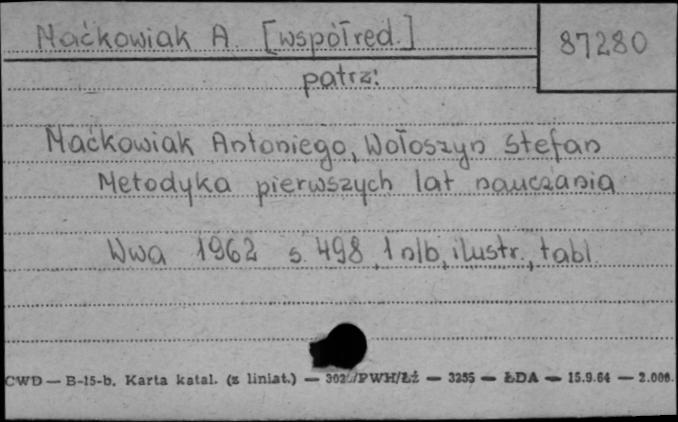 Maćkowiak A. [współred.]
87280
patrz:
Maćkowiak Antoniego, Wołoszyn Stefan
Metodyka pierwszych lat nauczania
Wwa 1962 s. 498, 1 nlb, ilustr., tabl.
CWD — B-15-b. Karta katal. (z liniat.) — /PWH/Łź — 3255 — ŁDA — 15.9.64 — 2.000.